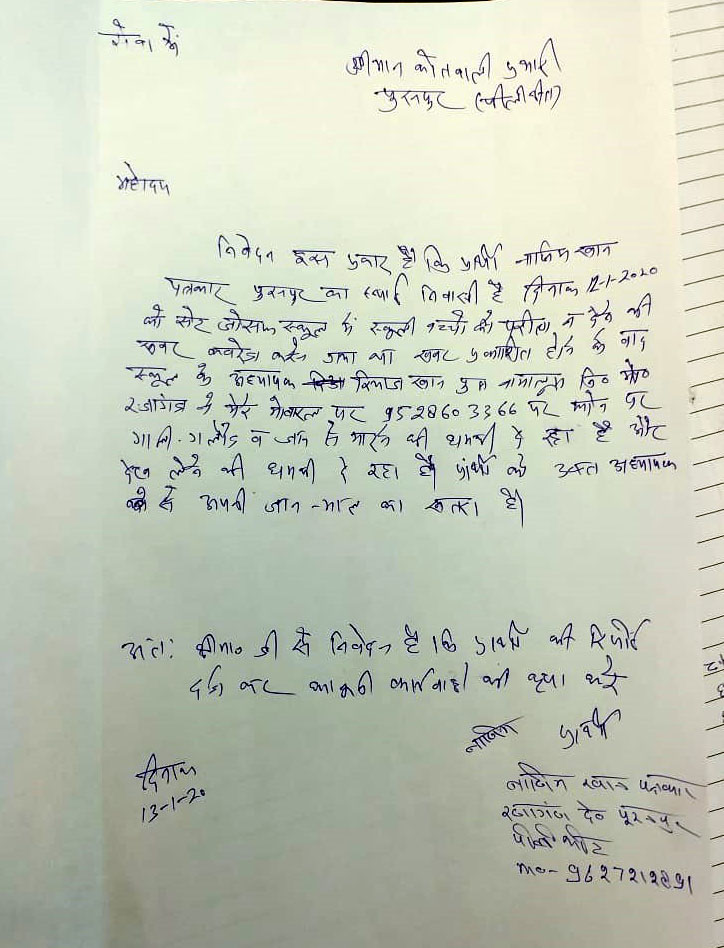 सेवा में
श्रीमान कोतवाली प्रभारी
पुरनपुर (पीलीभीत)
महोदय
निवेदन इस प्रकार है कि प्रार्थी नाजिम खान
पत्रकार पुरनपुर का स्थाई निवासी है दिनांक 12-1-2020
को सेंट जोसफ स्कूल में स्कूली बच्चों को परीक्षा न देने की
खबर कवरेज करने गया था खबर प्रकाशित होने के बाद
स्कूल के अध्यापक रियाज खान पुत्र नामालूम नि० मो०
रजागंज ने मेरे मोबाइल पर 9528603366 पर फोन पर
गाली-गलौच व जान से मारने की धमकी दे रहा है और
देख लेने की धमकी दे रहा है। प्रार्थी को उक्त अध्यापक
से अपनी जान-माल का खतरा है।
अतः श्रीमान जी से निवेदन है कि प्रार्थी की रिपोर्ट
दर्ज कर कानूनी कार्यवाही की कृपा करें
नाजिम प्रार्थी
दिनांक
13-1-20
नाजिम खान पत्रकार
रजागंज देo पूरनपुर
पीलीभीत
mo- 9627212891